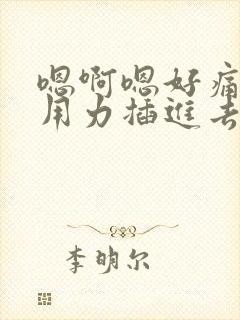 嗯啊嗯好痛
用力插進去
李明尔